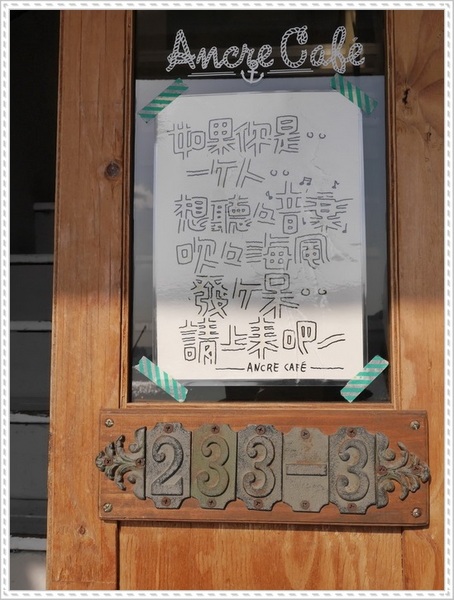 Ancre Café
如果你是..
一ケ人..
想聽々音樂
吹々海風
發ケ呆..
請上來吧~
ANCRE CAFÉ
233-3